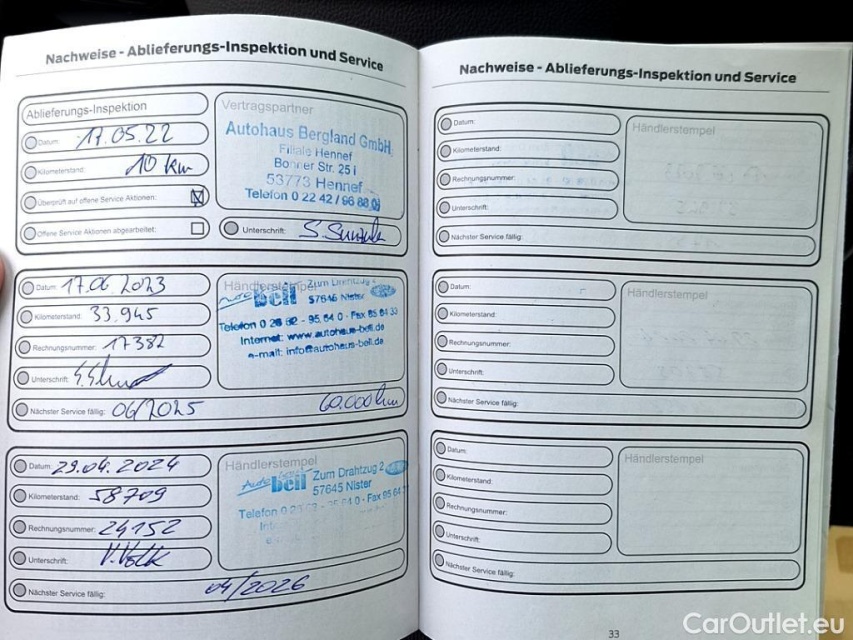 Nachweise - Ablieferungs-Inspektion und Service
Ablieferungs-Inspektion
Datum: 17.05.22
Kilometerstand: 10 km
Überprüft auf offene Service Aktionen:
Offene Service Aktionen abgearbeitet:
Vertragspartner
Autohaus Bergland GmbH
Filiale Hennef
Bonner Str. 25 i
53773 Hennef
Telefon 0 22 42 / 96 88 00
Unterschrift:
Datum: 17.06.2023
Kilometerstand: 33.945
Rechnungsnummer: 17382
Unterschrift:
Nächster Service fällig: 06/2025 60.000km
Händlerstempel
bell Zum Drahtzug 2
57645 Nister
Telefon 0 26 62 - 95 64 0 · Fax 95 64 33
Internet: www.autohaus-bell.de
e-mail: info@autohaus-bell.de
Datum: 29.04.2024
Kilometerstand: 58709
Rechnungsnummer: 24152
Unterschrift: V.Volk
Nächster Service fällig: 04/2026
Händlerstempel
Auto bell Zum Drahtzug 2
57645 Nister
Telefon 0 26 64 0 · Fax 95 64
Nachweise - Ablieferungs-Inspektion und Service
Datum:
Kilometerstand:
Rechnungsnummer:
Unterschrift:
Nächster Service fällig:
Händlerstempel
Datum:
Kilometerstand:
Rechnungsnummer:
Unterschrift:
Nächster Service fällig:
Händlerstempel
Datum:
Kilometerstand:
Rechnungsnummer:
Unterschrift:
Nächster Service fällig:
Händlerstempel
33
CarOutlet.eu